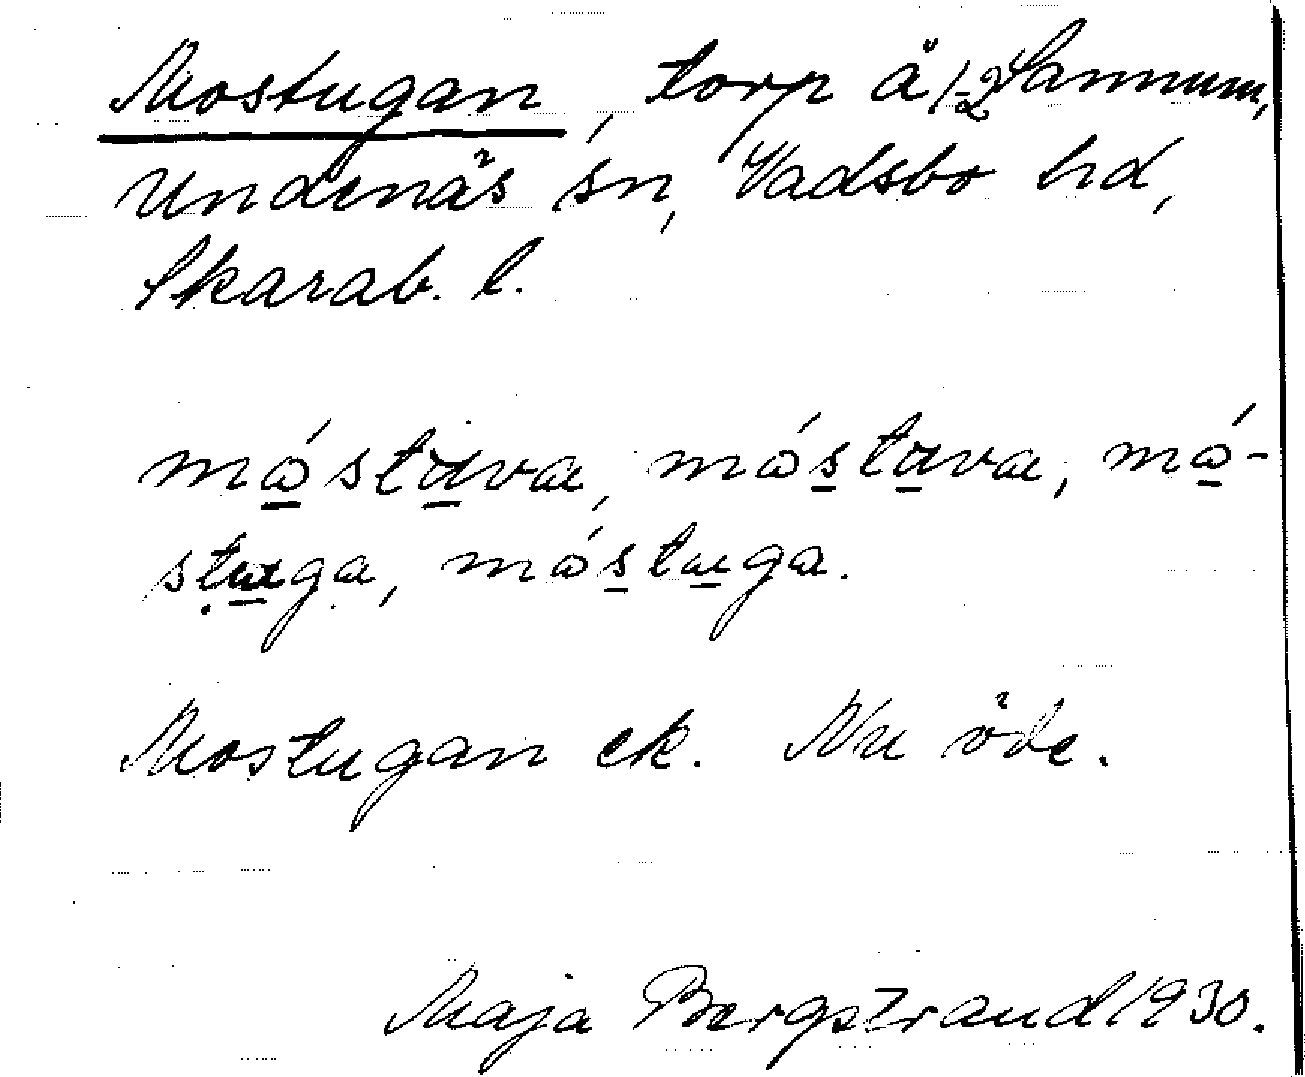 Mostugan, torp å 1-2 Sannum,
Undenäs sn, Vadsbo hd,
Skarab. l.
mόstuva, mόstuva, mό-
stuga, mόstuga.
Mostugan ek. Nu öde.
Maja Bergstrand 1930.